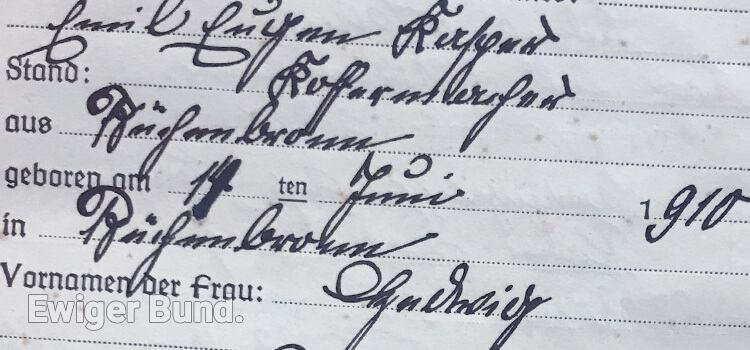 Emil Eugen Kasper
Stand: Koffermacher
aus Büchenbronn
geboren am 14 ten Juni 1910
in Büchenbronn
Vornamen der Frau: Hedwig
Ewiger Bund.